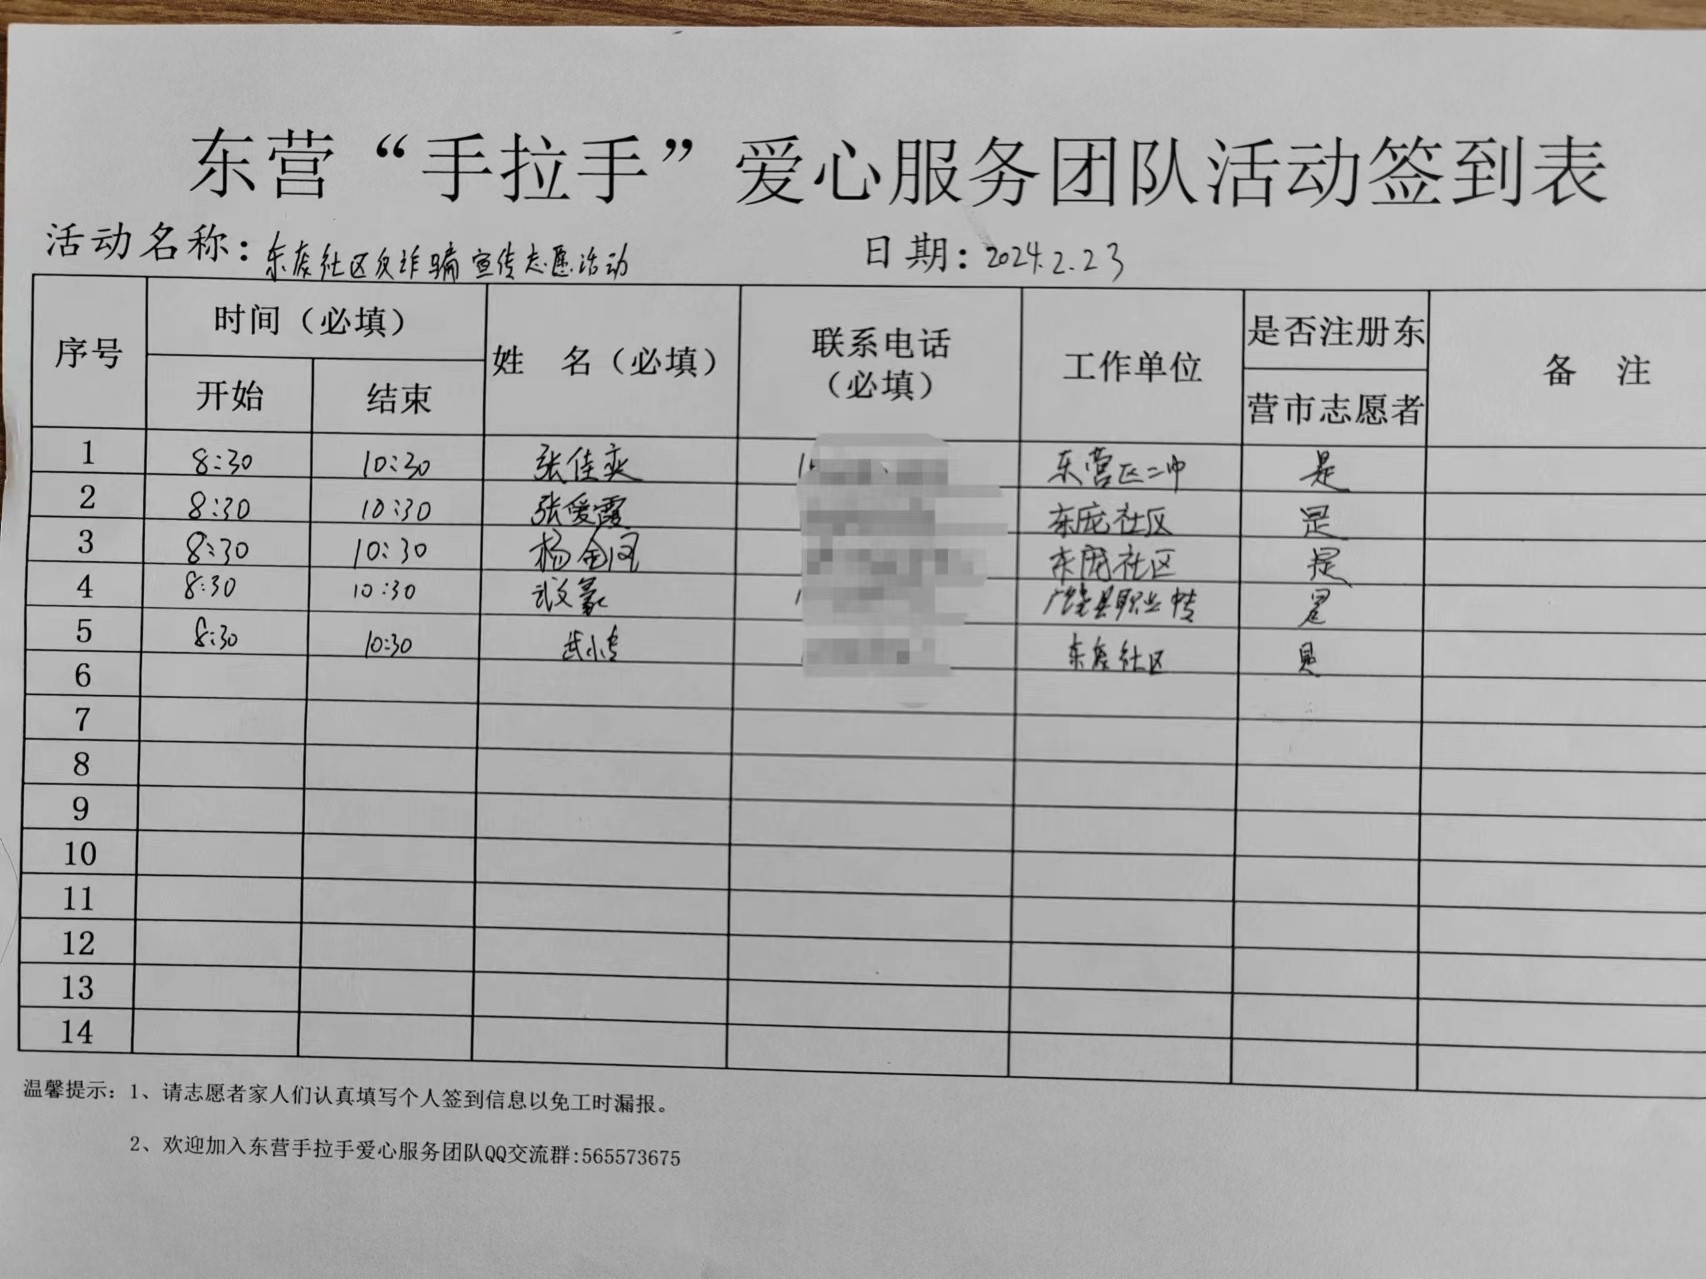 东营“手拉手”爱心服务团队活动签到表
活动名称：东庞社区反诈骗宣传志愿活动 日期：2024.2.23
序号 时间（必填） 姓 名（必填） 联系电话（必填） 工作单位 是否注册东营市志愿者 备 注
开始 结束
1 8:30 10:30 张佳奕 东营区二中 是
2 8:30 10:30 张爱霞 东庞社区 是
3 8:30 10:30 杨金 东庞社区 是
4 8:30 10:30 广饶县职业中专 是
5 8:30 10:30 武小 东庞社区 是
6
7
8
9
10
11
12
13
14
温馨提示：1、请志愿者家人们认真填写个人签到信息以免工时漏报。
2、欢迎加入东营手拉手爱心服务团队QQ交流群:565573675